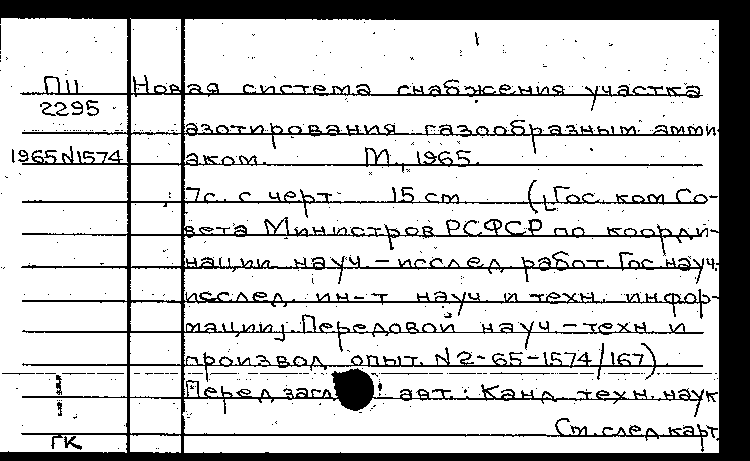 П11
2295
1965 N1574
Новая система снабжения участка
азотирования газообразным амми-
аком. М., 1965.
7с. с черт. 15 см. ([Гос. ком Со-
вета Министров РСФСР по коорди-
нации науч.-исслед работ. Гос. науч.
исслед. ин-т науч. и техн. инфор-
мации]. Передовой науч.-техн. и
производ. опыт. N 2-65-1574/167)
Перед загл. авт.: Канд. техн. наук
См. след карт.
ГК